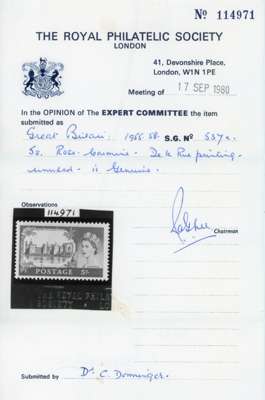 Nº 114971
THE ROYAL PHILATELIC SOCIETY
LONDON
41, Devonshire Place,
London, W1N 1PE
Meeting of 17 SEP 1980
In the OPINION of The EXPERT COMMITTEE the item
submitted as
Great Britain: 1955-58. S.G. Nº 537a.
5s. Rose-carmine. De la Rue printing
unused - is Genuine.
Observations
114971
Chairman
POSTAGE 5/-
THE ROYAL PHILA
Submitted by Dr. C. Domnenger.